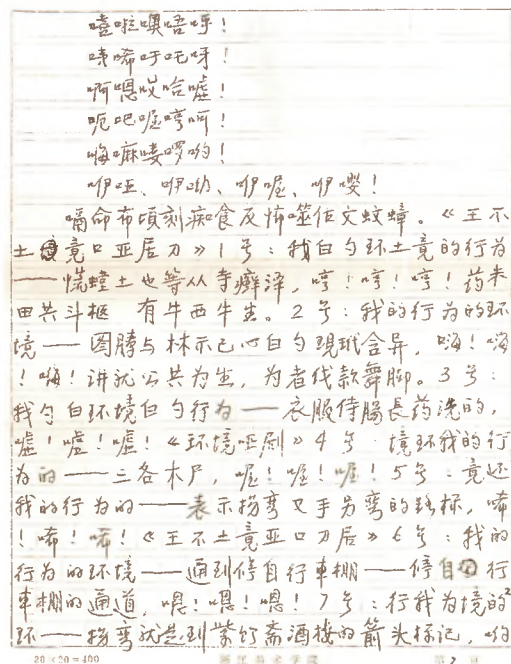 嘻啦噢唔呼!
咦唏吁吒呀!
啊嗯哎哈嘘!
呃吧喔哼呵!
嗨嘛喽啰哟!
咿哑、咿呦、咿喔、咿嘤!
嗝命布顷刻痴食及怖噬作文蚊蟑。《王不
土竟口亚居刀》1号:我白勺环土竟的行为
——慌螳土也等从寺癣淬,哼!哼!哼!药未
田共斗柩 有牛西牛生。2号:我的行为的环
境——图腾与林示己心白勺現玳含异,嗨!嗨
!嗨!讲就公共为生,为者线款舞脚。3号:
我勺白环境白勺行为——衣服侍腸長药洗的,
嘘!嘘!嘘!《环境哑剧》4号:境环我的行
为的——三各木尸,喔!喔!喔!5号:竟还
我的行为的——表示拐弯又手另弯的路标,唏
!唏!唏!《王不土竟亚口刀居》6号:我的
行为的环境——通到修自行車棚——修自行
車棚的通道,嗯!嗯!嗯!7号:行我为境的
环——拐弯就是到紫竹斋酒楼的箭头标记,哟
20×20=400
第2页